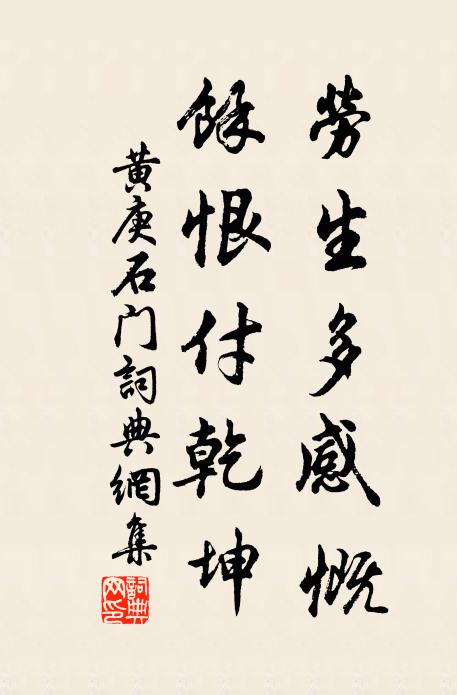 勞生多感慨
餘恨付乾坤
黃庚石门詞典網集
詞典网印